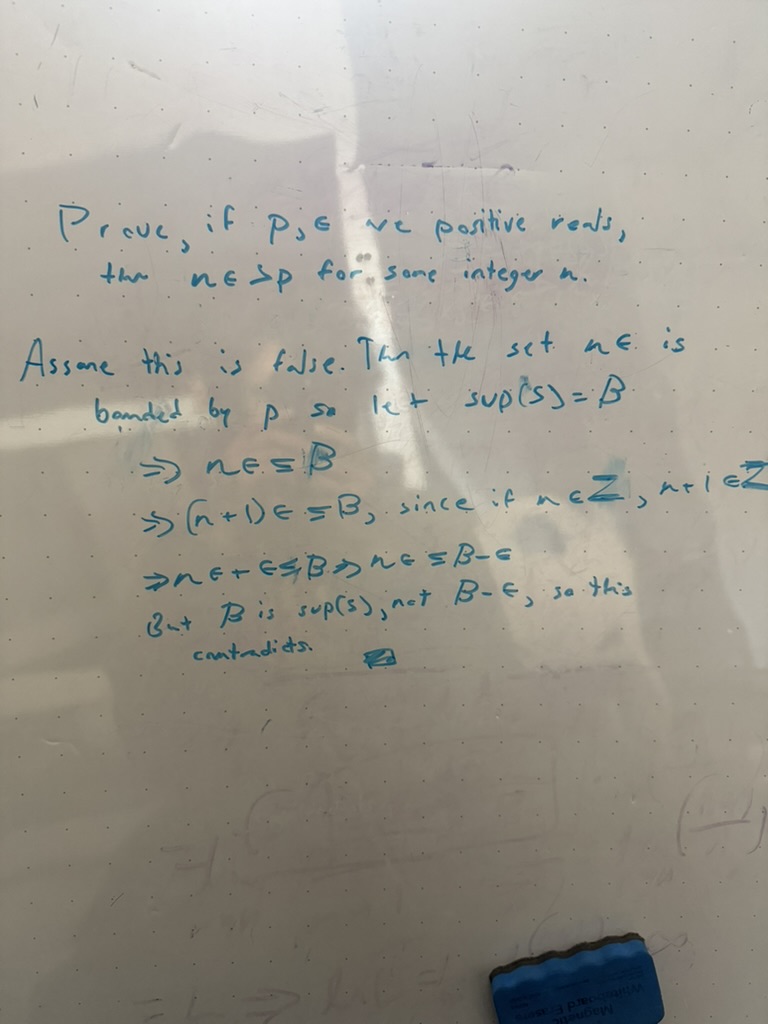 Prove, if p,ϵ are positive reals,
then nϵ>p for some integer n.
Assume this is false. Then the set nϵ is
bounded by p so let sup(S)=β
⇒ nϵ≤β
⇒ (n+1)ϵ≤β, since if n∈ℤ, n+1∈ℤ
⇒nϵ+ϵ≤β⇒nϵ≤β-ϵ
But β is sup(S), not β-ϵ, so this
contradicts.
Magnetic
Whiteboard Eraser